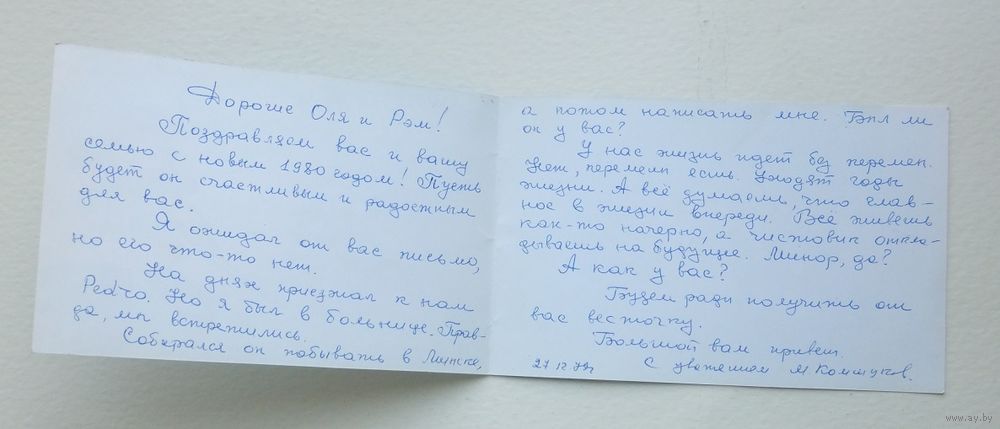 Дорогие Оля и Рэм!
Поздравляем вас и вашу
семью с новым 1980 годом! Пусть
будет он счастливым и радостным
для вас.
Я ожидал от вас письмо,
но его что-то нет.
На днях приезжал к нам
Pedro. Но я был в больнице. Прав-
да, мы встретились.
Собирался он побывать в Минске,
а потом написать мне. Был ли
он у вас?
У нас жизнь идет без перемен.
Нет, перемены есть. Уходят годы
жизни. А всё думаем, что глав-
ное в жизни впереди. Всё живешь
как-то начерно, а чистовик откла-
дываешь на будущее. Минор, да?
А как у вас?
Будем рады получить от
вас весточку.
Большой вам привет.
27 12 79г С уважением М
www.ay.by